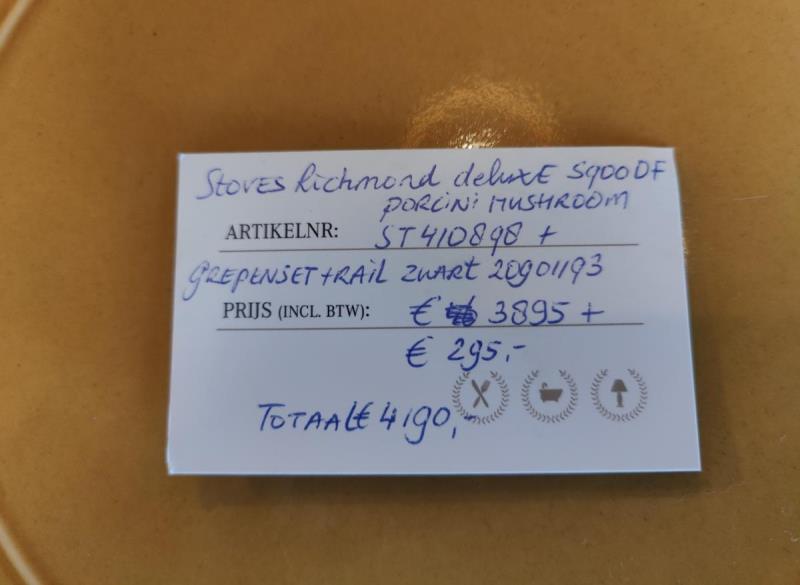 Stoves Richmond deluxE S900DF
PORCINI MUSHROOM
ARTIKELNR: ST410898 +
GREPENSET+RAIL ZWART 20901193
PRIJS (INCL. BTW): € 3895 +
€ 295,-
TOTAAL € 4190,-